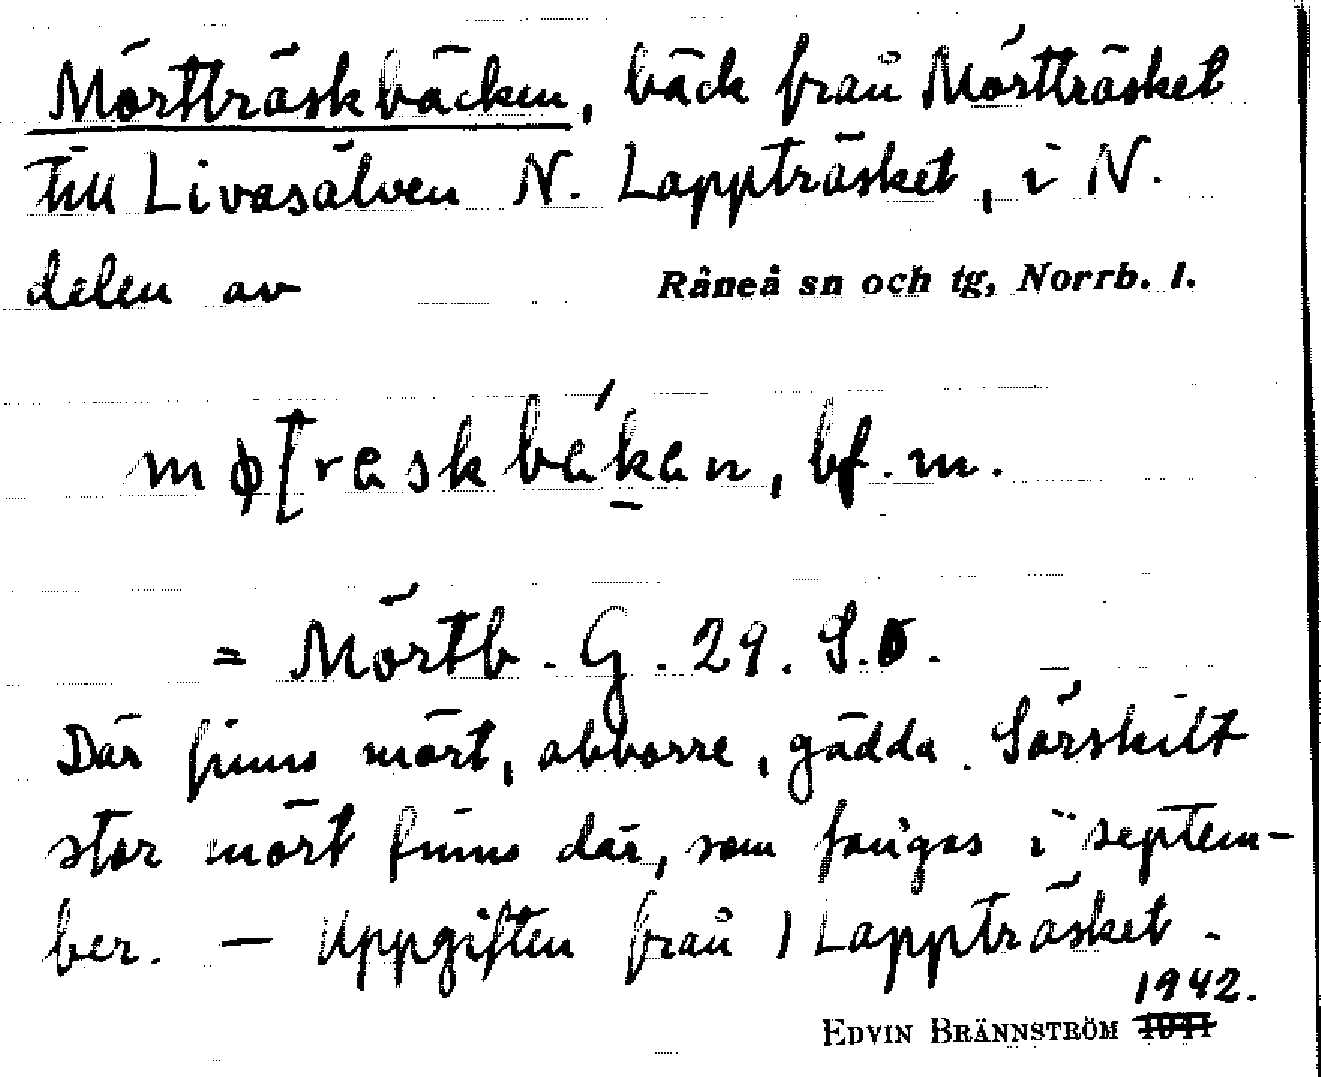 Mörtträskbäcken, bäck från Mörtträsket
till Livasälven N. Lappträsket, i N.
delen av Råneå sn och tg, Norrb. l.
bf. m.
= Mörtb. G. 29. S.o.
Där finns mört, abborre, gädda. Särskilt
stor mört finns där, som fångas i septem-
ber. — Uppgiften från 1 Lappträsket.
1942.
EDVIN BRÄNNSTRÖM 1941